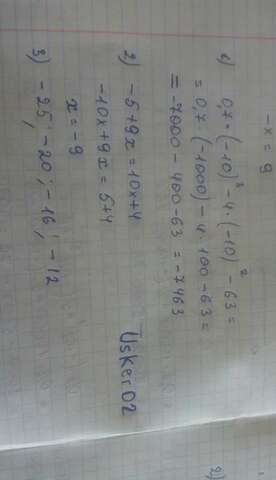 -x = 9
1) 0,7 · (-10)³ - 4 · (-10)² - 63 =
= 0,7 · (-1000) - 4 · 100 - 63 =
= -7000 - 400 - 63 = -7463
2) -5 + 9x = 10x + 4
-10x + 9x = 5 + 4
x = -9
3) -25; -20; -16; -12
UsKer02
2)